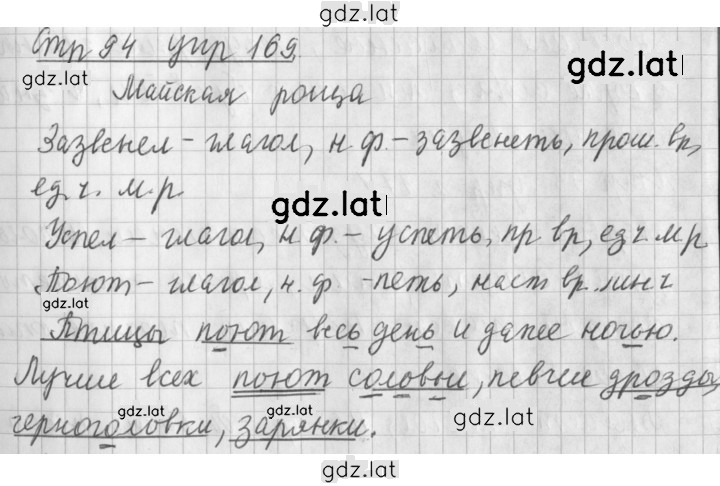 gdz.lat
Стр 94 упр 169
gdz.lat
gdz.lat
Майская роща
Зазвенел – глагол, н.ф. – зазвенеть, прош. вр,
ед.ч. м.р
gdz.lat
Успел – глагол, н.ф. – успеть, пр вр, ед ч. м.р
Поют – глагол, н.ф - петь, наст вр. мн.ч
gdz.lat
Птицы поют весь день и даже ночью.
gdz.lat
gdz.lat
Лучше всех поют соловьи, певчие дрозды,
gdz.lat
gdz.lat
gdz.lat
черноголовки, зарянки.
gdz.lat